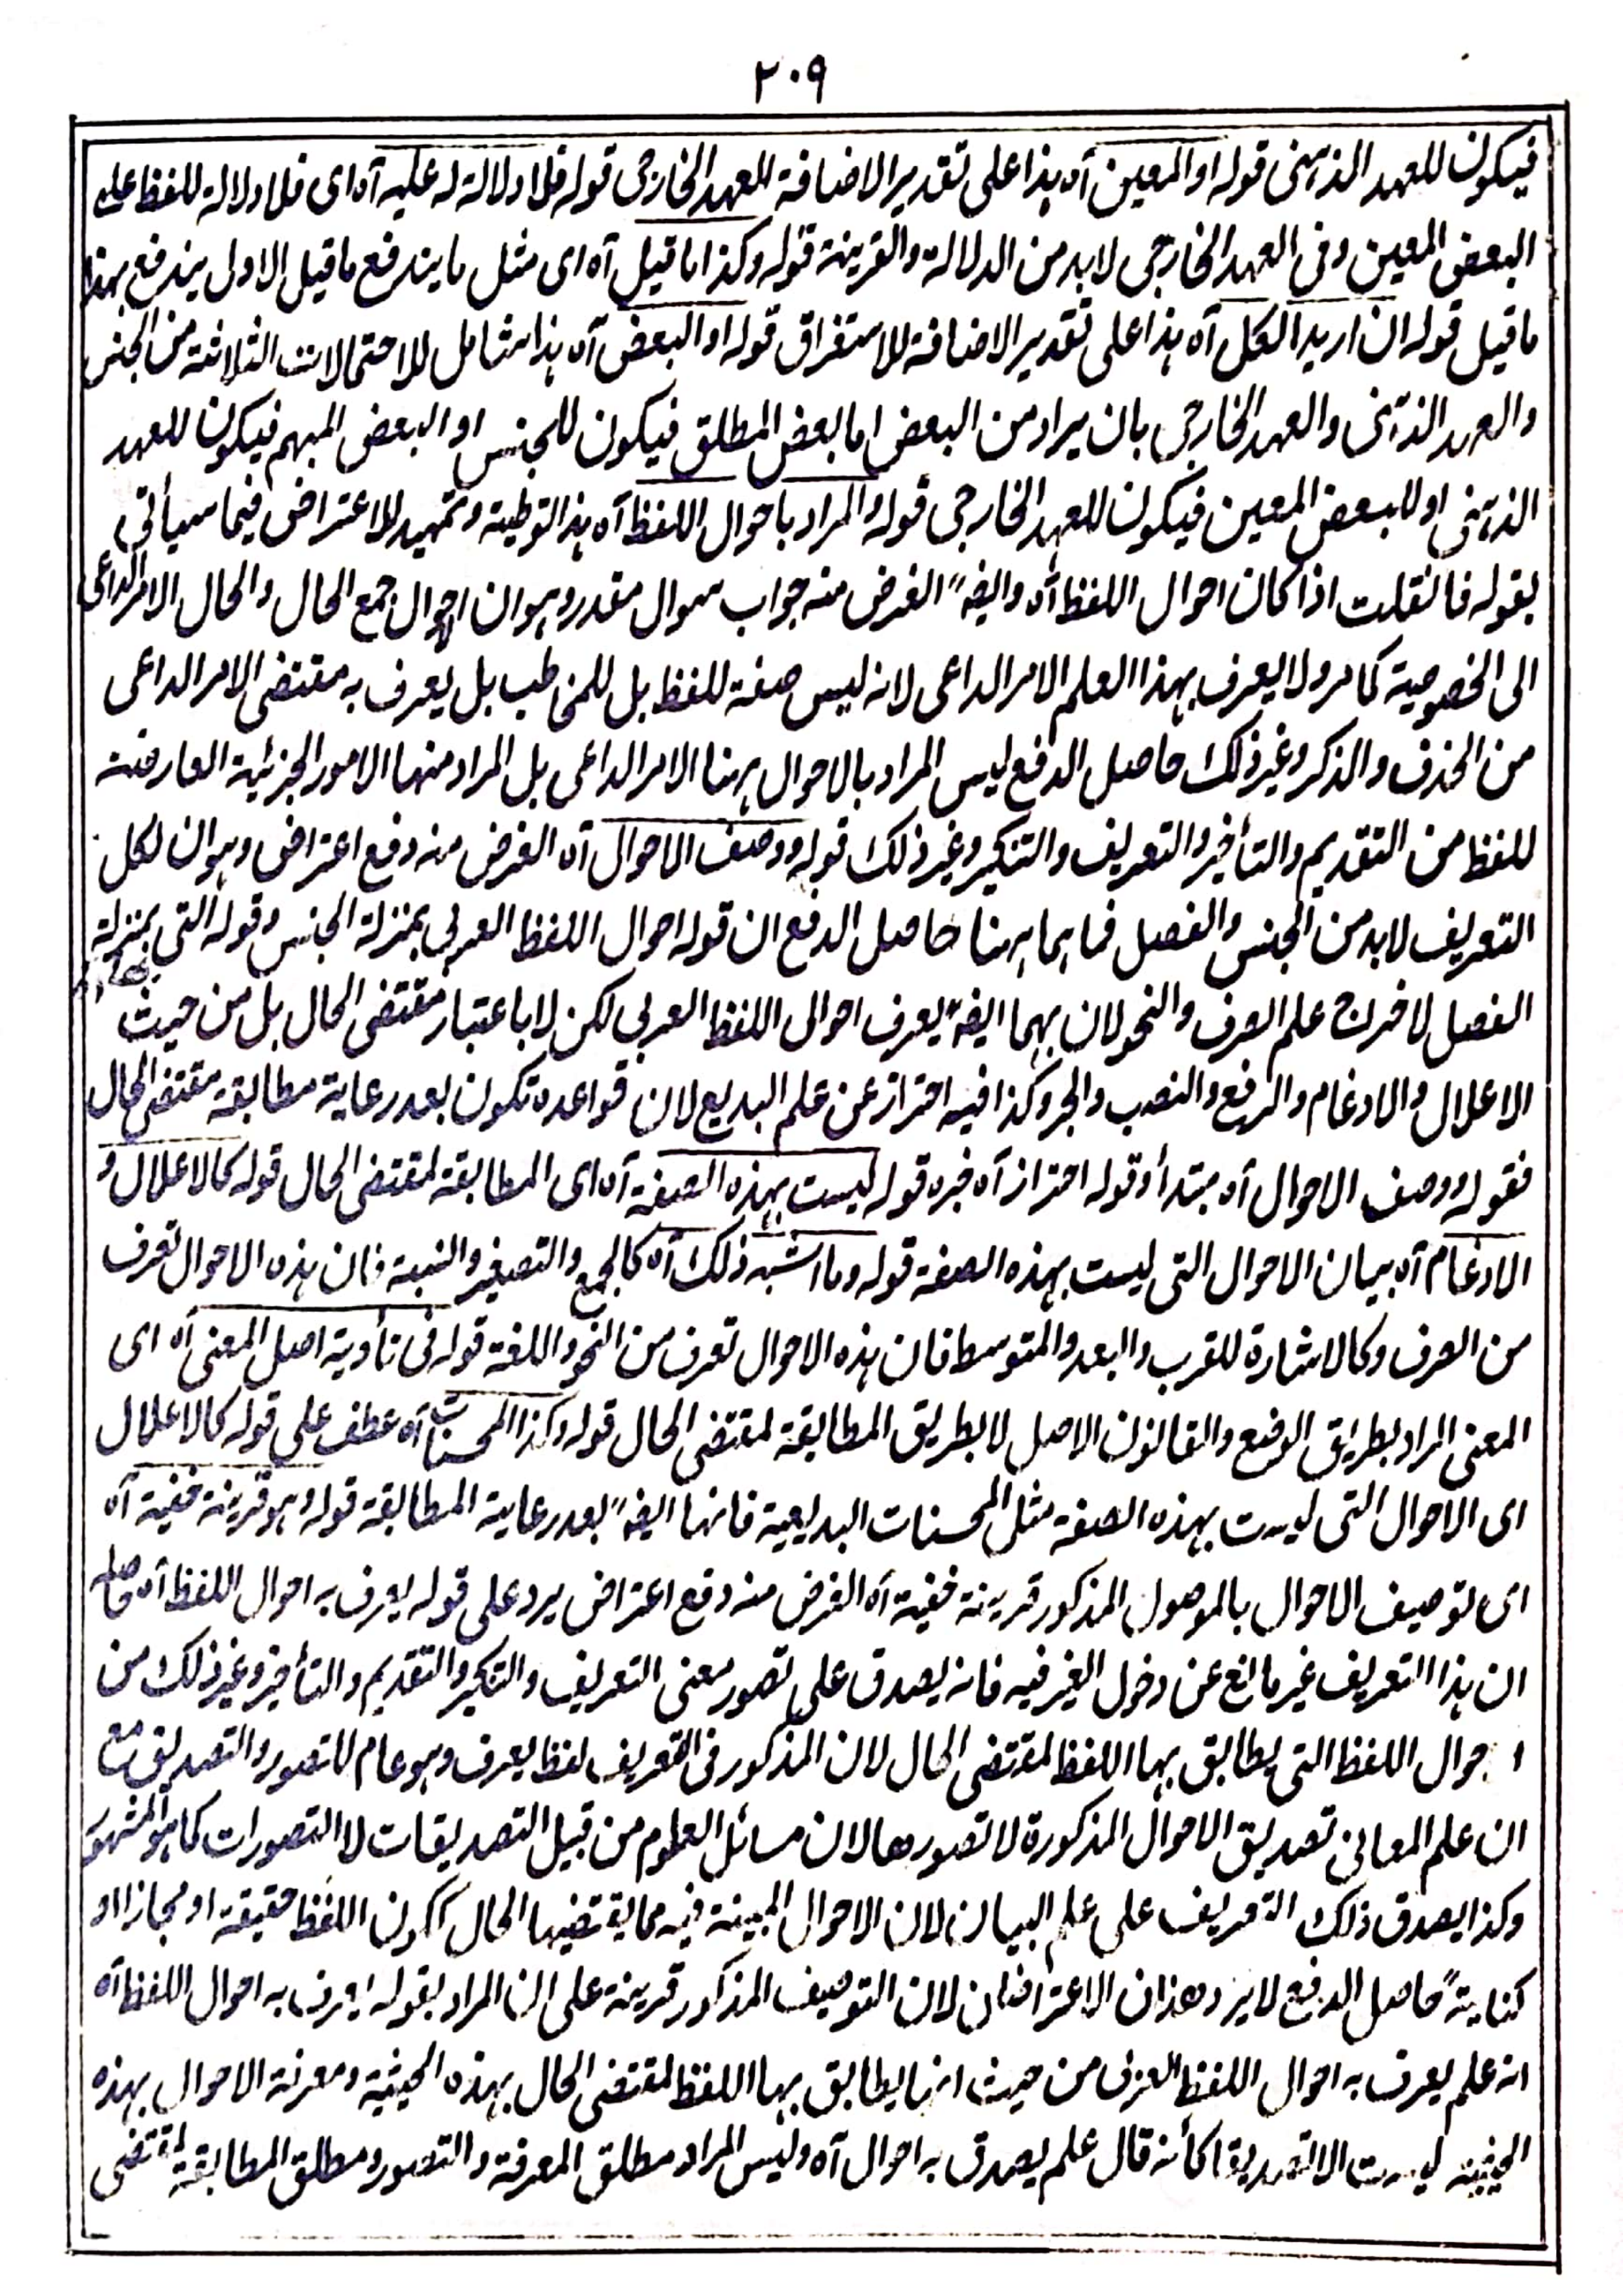 ٢٠٩
فيكون للعهد الذهنى قوله او المعين آه هذا على تقدير الاضافة للعهد الخارجى قوله فلا دلالة له عليه آه اى فلا دلالة للفظ على
البعض المعين وفى العهد الخارجى لابد من الدلالة والقرينة قوله وكذا ما قيل آه اى مثل ما يندفع ما قيل الاولى يندفع بهذا
ما قيل قوله ان اريد الكل آه هذا على تقدير الاضافة للاستغراق قوله او البعض آه هذا شامل للاحتمالات الثلاثة من الجنس
والعهد الذهنى والعهد الخارجى بان يراد من البعض اما بعض المطلق فيكون للجنس او البعض المبهم فيكون للعهد
الذهنى او للبعض المعين فيكون للعهد الخارجى قوله والمراد باحوال اللفظ آه هذا توطية وتمهيد للاعتراض فيما سيأتى
بقوله فانقلت اذا كان احوال اللفظ آه وايضًا الغرض منه جواب سوال مقدر وهو ان احوال جمع الحال والحال الامر الداعى
الى الخصوصية كما مر ولا يعرف بهذا العلم الامر الداعى لانه ليس صفة للفظ بل للمخاطب بل يعرف به مقتضى الامر الداعى
من الحذف والذكر وغير ذلك حاصل الدفع ليس المراد بالاحوال ههنا الامر الداعى بل المراد منها الامور الجزئية العارضة
للفظ من التقديم والتأخير والتعريف والتنكير وغير ذلك قوله ووصف الاحوال آه الغرض منه دفع اعتراض وهو ان لكل
التعريف لابد من الجنس والفصل فما هما ههنا حاصل الدفع ان قوله احوال اللفظ العربى بمنزلة الجنس وقوله التى بمنزلة
الفصل لاخراج علم الصرف والنحو لان بهما ايضًا يعرف احوال اللفظ العربى لكن لا باعتبار مقتضى الحال بل من حيث
الاعلال والادغام والرفع والنصب والجر وكذا فيه احتراز عن علم البديع لان قواعده تكون بعد رعاية مطابقة مقتضى الحال
فقوله ووصف الاحوال آه مبتدأ وقوله احتراز آه خبره قوله ليست بهذه الصفة آه اى المطابقة لمقتضى الحال قوله كالاعلال و
الادغام آه بيان الاحوال التى ليست بهذه الصفة قوله وما اشبه ذلك آه كالجمع والتصغير والنسبة فان هذه الاحوال تعرف
من الصرف وكالاشارة للقرب والبعد والمتوسط فان هذه الاحوال تعرف من النحو واللغة قوله فى تأدية اصل المعنى آه اى
المعنى المراد بطريق الوضع والقانون الاصل لا بطريق المطابقة لمقتضى الحال قوله وكذا المحسنات آه عطف على قوله كالاعلال
اى الاحوال التى ليست بهذه الصفة مثل المحسنات البديعية فانها ايضًا بعد رعاية المطابقة قوله وهو قرينة خفية آه
اى توصيف الاحوال بالموصول المذكور قرينة خفية آه الغرض منه دفع اعتراض يرد على قوله يعرف به احوال اللفظ آه حاصله
ان هذا التعريف غير مانع عن دخول الغير فيه فانه يصدق على تصور معنى التعريف والتنكير والتقديم والتأخير وغير ذلك من
احوال اللفظ التى يطابق بها اللفظ لمقتضى الحال لان المذكور فى التعريف لفظ يعرف وهو عام للتصور والتصديق مع
ان علم المعانى تصديق الاحوال المذكورة لا تصورها لان مسائل العلوم من قبيل التصديقات لا التصورات كما هو المشهور
وكذا يصدق ذلك التعريف على علم البيان لان الاحوال المبينة فيه مما يقتضيها الحال ككون اللفظ حقيقة او مجازا او
كنايةً حاصل الدفع لا يرد هذان الاعتراضان لان التوصيف المذكور قرينة على ان المراد بقوله يعرف به احوال اللفظ آه
انه علم يعرف به احوال اللفظ العربى من حيث انها يطابق بها اللفظ لمقتضى الحال بهذه الحيثية ومعرفة الاحوال بهذه
الحيثية ليست الا تصديقا كأنه قال علم يصدق به احوال آه وليس المراد مطلق المعرفة والتصور ومطلق المطابقة لمقتضى